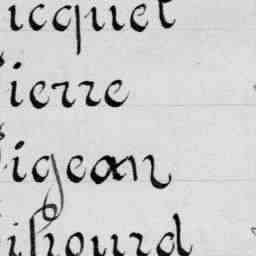 icquet
ierre
igean
ihourd